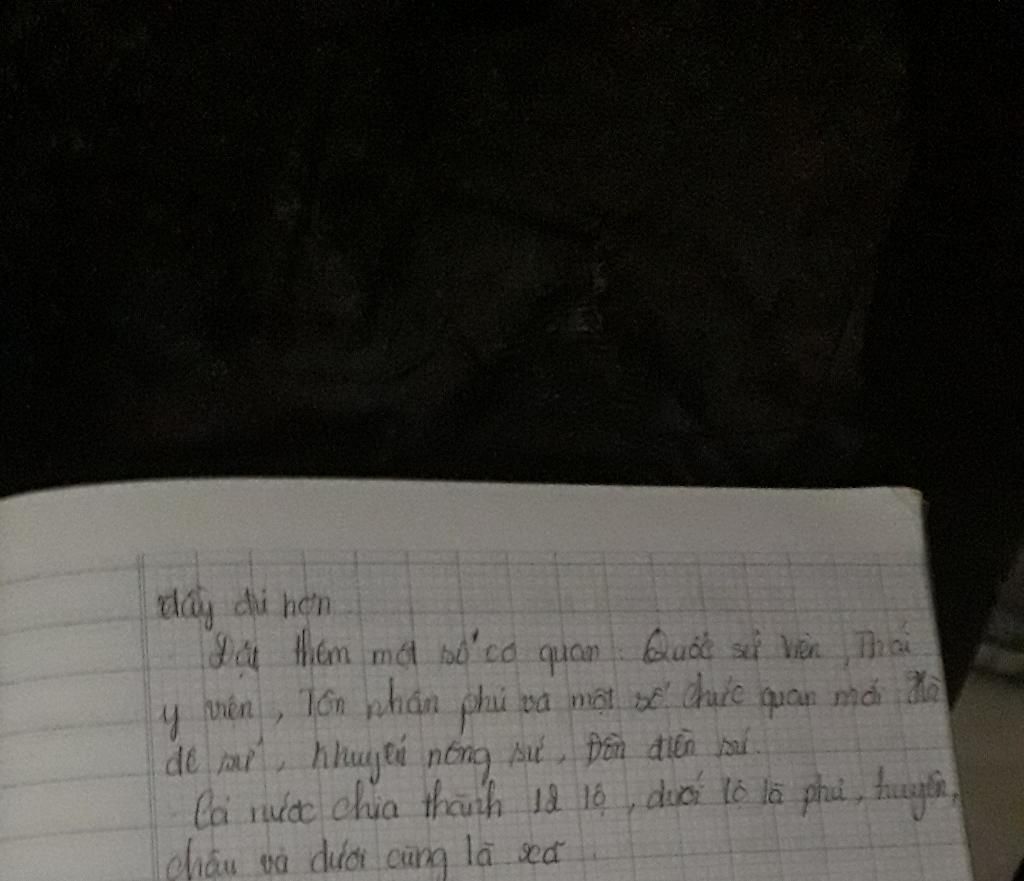 đầy đủ hơn
Đặt thêm một số cơ quan: Quốc sử viện, Thái
y viện, Tôn nhân phủ và một số chức quan mới Hà
đê sứ, khuyến nông sứ, Đồn điền sứ.
Cả nước chia thành 12 lộ, dưới lộ là phủ, huyện,
châu và dưới cùng là xã